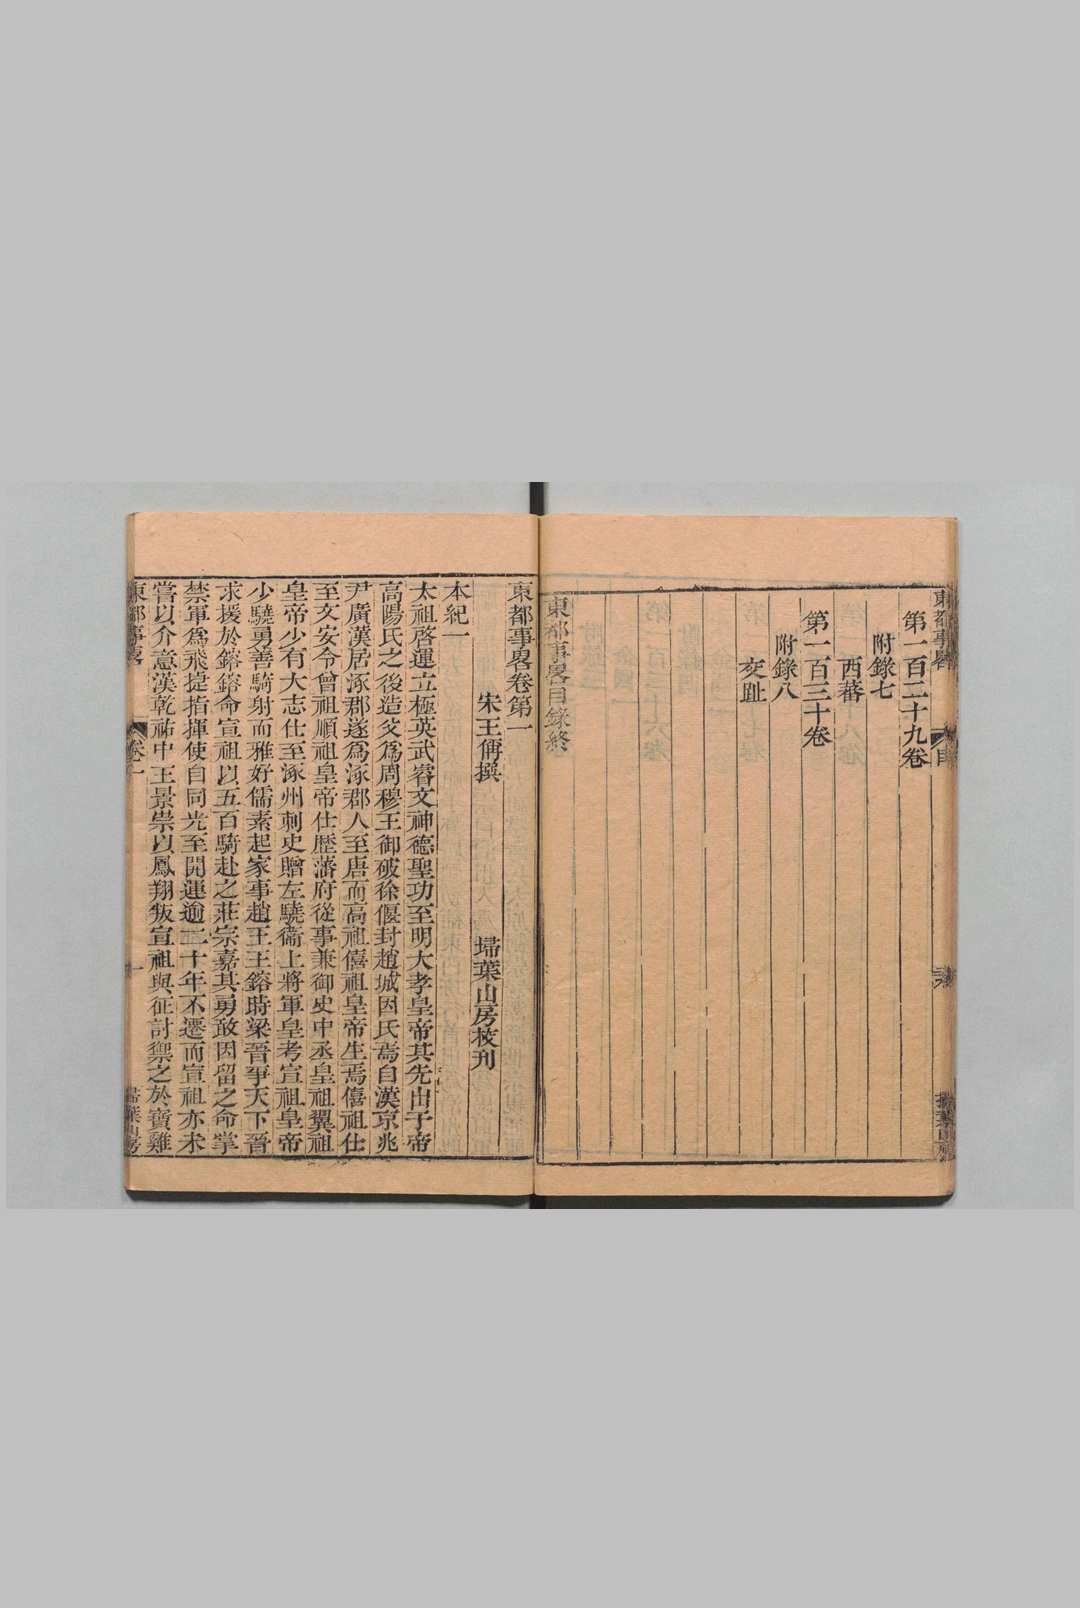 東都事畧
目
六
掃葉山房
第一百二十九卷
附錄七
西蕃
第一百三十卷
附錄八
交趾
東都事畧目錄終
東都事畧卷第一
宋王偁撰
掃葉山房校刊
本紀一
太祖啓運立極英武睿文神德聖功至明大孝皇帝其先出于帝
高陽氏之後造父爲周穆王御破徐偃封趙城因氏焉自漢京兆
尹廣漢居涿郡遂爲涿郡人至唐而高祖僖祖皇帝生焉僖祖仕
至文安令曾祖順祖皇帝仕歷藩府從事兼御史中丞皇祖翼祖
皇帝少有大志仕至涿州刺史贈左驍衞上將軍皇考宣祖皇帝
少驍勇善騎射而雅好儒素起家事趙王王鎔時梁晉爭天下晉
求援於鎔鎔命宣祖以五百騎赴之莊宗嘉其勇敢因留之命掌
禁軍爲飛捷指揮使自同光至開運逾二十年不遷而宣祖亦未
嘗以介意漢乾祐中王景崇以鳳翔叛宣祖與征討禦之於寶雞
東都事畧
卷一
一
掃葉山房